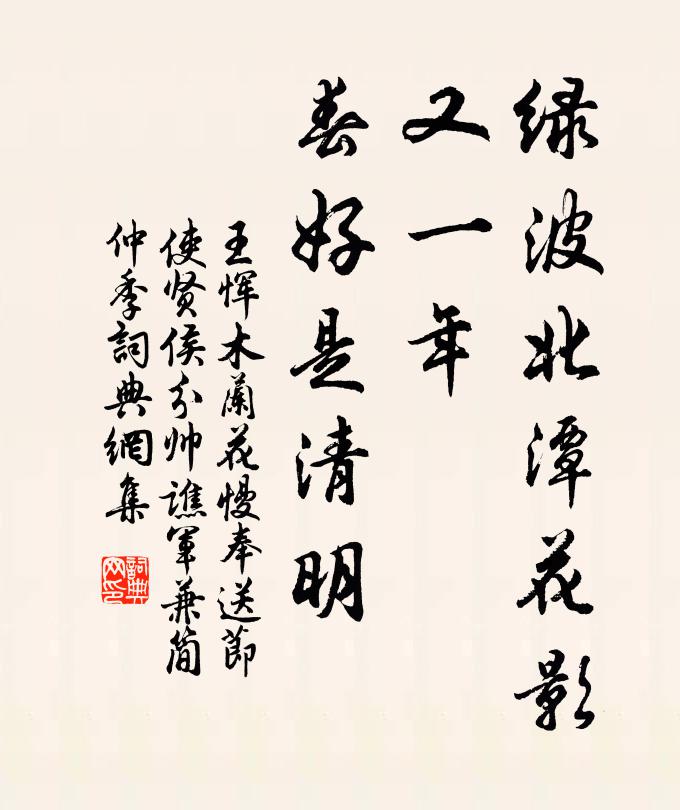 绿波北潭花影
又一年
春好是清明
王恽木蘭花慢奉送節
使贤侯分帅譙軍兼简
仲季詞典網集
詞典
网印